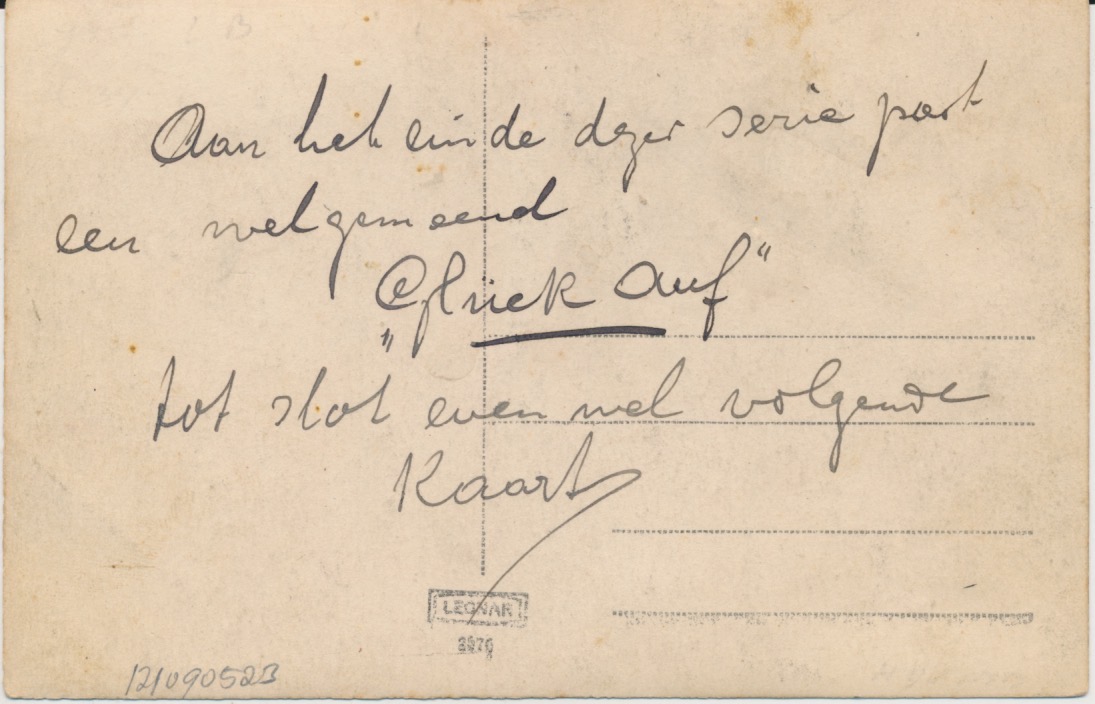 Aan het einde dezer serie past
een welgemeend
„Glück auf“
tot slot even wel volgende
Kaart
LEONAR
3976
121090523